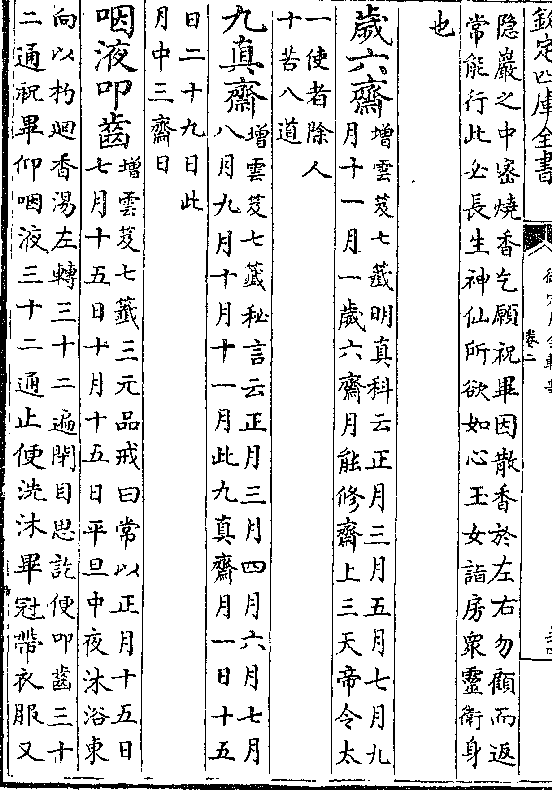 欽定四庫全書
卷二
隐巖之中密燒香乞願祝畢因散香於左右勿顧而返
常能行此必長生神仙所欲如心玉女詣房衆靈衛身
也
歲六齋增雲芨七籖明真科云正月三月五月七月九
月十一月一歲六齋月能修齋上三天帝令太
一使者除人
十苦八道
九真齋增雲芨七籖秘言云正月三月四月六月七月
八月九月十月十一月此九真齋月一日十五
日二十九日此
月中三齋日
咽液叩齒增雲芨七籖三元品戒曰常以正月十五日
七月十五日十月十五日平旦中夜沐浴東
向以杓廻香湯左轉三十二遍閉目思訖便叩齒三十
二通祝畢仰咽液三十二通止便洗沐畢冠帶衣服又